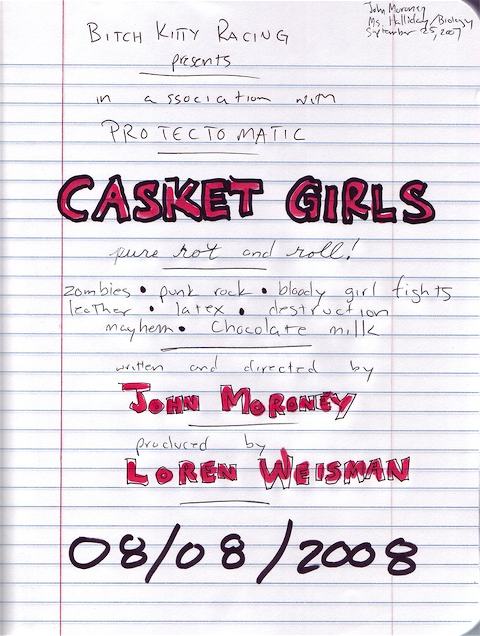 John Moroney
Ms. Halliday/Biology
September 25, 2007
BITCH KITTY RACING
presents
in association with
PROTECTOMATIC
CASKET GIRLS
pure rot and roll!
zombies • punk rock • bloody girl fights
leather • latex • destruction
mayhem • Chocolate milk
written and directed by
JOHN MORONEY
produced by
LOREN WEISMAN
08/08/2008